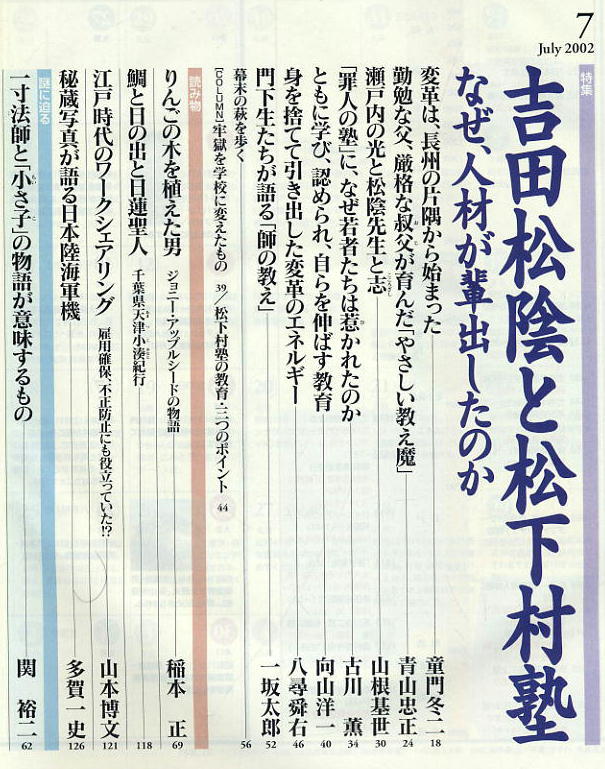 7
July 2002
特集
吉田松陰と松下村塾
なぜ、人材が輩出したのか
変革は、長州の片隅から始まった 童門冬二 18
勤勉な父、厳格な叔父が育んだ「やさしい教え魔」 青山忠正 24
瀬戸内の光と松陰先生と志 山根基世 30
「罪人の塾」に、なぜ若者たちは惹かれたのか 古川 薫 34
ともに学び、認められ、自らを伸ばす教育 向山洋一 40
身を捨てて引き出した変革のエネルギー 八尋舜右 46
門下生たちが語る「師の教え」 一坂太郎 52
幕末の萩を歩く 56
[COLUMN] 牢獄を学校に変えたもの 39/松下村塾の教育・三つのポイント 44
読み物
りんごの木を植えた男 ジョニー・アップルシードの物語 稲本 正 69
鯛と日の出と日蓮聖人 千葉県天津小湊紀行 118
江戸時代のワークシェアリング 雇用確保、不正防止にも役立っていた!? 山本博文 121
秘蔵写真が語る日本陸海軍機 多賀一史 126
謎に迫る
一寸法師と「小さ子」の物語が意味するもの 関 裕二 62